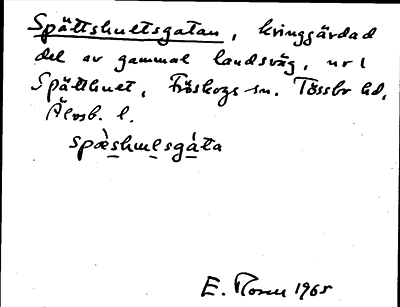 Späittshultsgatan, kringgärdad
del av gammal landsväg, nr 1
Späitthult, Fröskogs sn. Tössbo hd,
Älvsb. l.
spæ̀shu̱lsgá̱ta
E. Rosen 1965